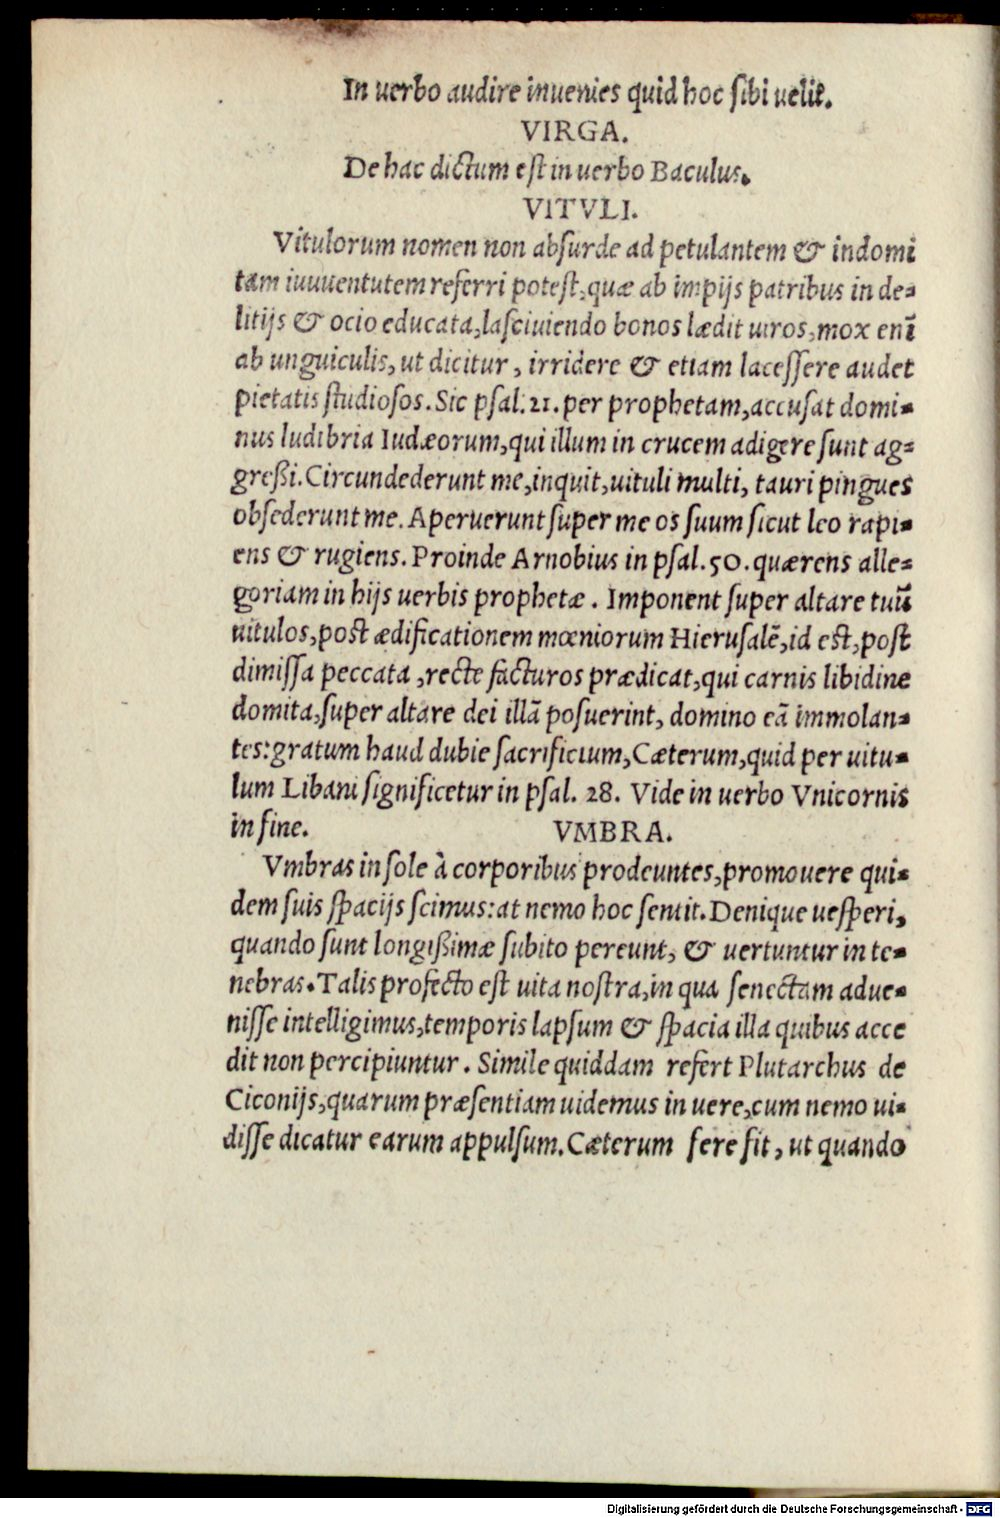 In uerbo audire inuenies quid hoc ſibi uelit.
VIRGA.
De hac dictum eſt in uerbo Baculus.
VITVLI.
Vitulorum nomen non abſurde ad petulantem & indomi
tam iuuuentutem referri poteſt, quæ ab impijs patribus in de⸗
litijs & ocio educata, laſciuiendo bonos lædit uiros, mox enī
ab unguiculis, ut dicitur, irridere & etiam laceſſere audet
pietatis ſtudioſos. Sic pſal. 21. per prophetam, accuſat domi⸗
nus ludibria Iudæorum, qui illum in crucem adigere ſunt ag⸗
greßi. Circundederunt me, inquit, uituli multi, tauri pingues
obſederunt me. Aperuerunt ſuper me os ſuum ſicut leo rapi⸗
ens & rugiens. Proinde Arnobius in pſal. 50. quærens alle⸗
goriam in hijs uerbis prophetæ. Imponent ſuper altare tuū
uitulos, poſt ædificationem mœniorum Hieruſalē, id eſt, poſt
dimiſſa peccata, recte facturos prædicat, qui carnis libidine
domita, ſuper altare dei illā poſuerint, domino eā immolan⸗
tes: gratum haud dubie ſacrificium, Cæterum, quid per uitu⸗
lum Libani ſignificetur in pſal. 28. Vide in uerbo Vnicornis
in fine. VMBRA.
Vmbras in ſole à corporibus prodeuntes, promouere qui⸗
dem ſuis ſpacijs ſcimus: at nemo hoc ſentit. Denique ueſperi,
quando ſunt longißimæ ſubito pereunt, & uertuntur in te⸗
nebras. Talis profecto eſt uita noſtra, in qua ſenectam adue⸗
niſſe intelligimus, temporis lapſum & ſpacia illa quibus acce
dit non percipiuntur. Simile quiddam refert Plutarchus de
Ciconijs, quarum præſentiam uidemus in uere, cum nemo ui⸗
diſſe dicatur earum appulſum. Cæterum fere fit, ut quando
Digitalisierung gefördert durch die Deutsche Forschungsgemeinschaft - DFG